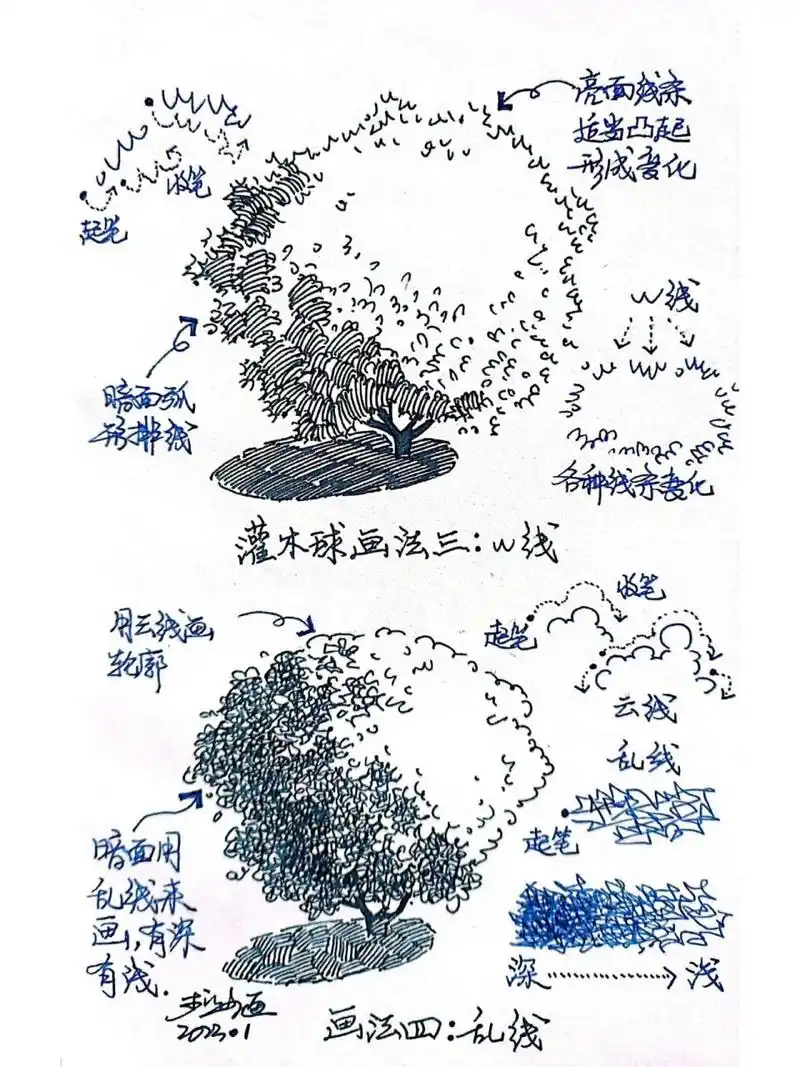 亮面线条
适当凸起
形成变化
收笔
起笔
W线
暗面弧
形排线
各种线条变化
灌木球画法三：W线
用云线画
轮廓
收笔
起笔
云线
乱线
起笔
暗面用
乱线来
画，有深
有浅.
深 浅
2023.1
画法四：乱线